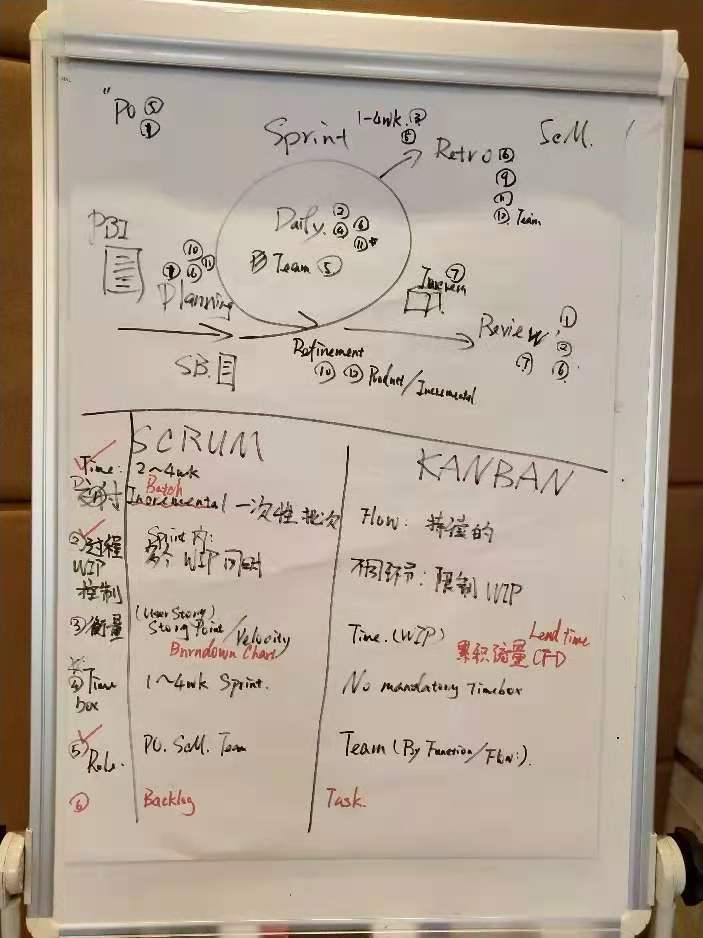 "PO ⑤
Sprint
1-4wk.
Retro
⑨
⑪
⑫ Team
ScM.
PBI
Daily. ②
④ ⑥
⑪
Team ⑤
⑩
⑥ ⑪
Planning
⑦
Review. ①
②
⑦ ⑥
SB.
Refinement
⑩ ⑫ Product/Incremental
SCRUM
KANBAN
Time: 2~4wk
Batch
Incremental 一次性批次
Flow: 持续的
②过程 Sprint内:
WIP 多个WIP同时
控制
不同环节: 限制WIP
③衡量 (User Story)
Story Point/Velocity
Burndown Chart
Time.(WIP)
Lead time
累积流量 CFD
④Time box 1~4wk Sprint.
No mandatory Timebox
⑤Role. PO. ScM. Team
Team (By Function/Flow:).
⑥ Backlog
Task.